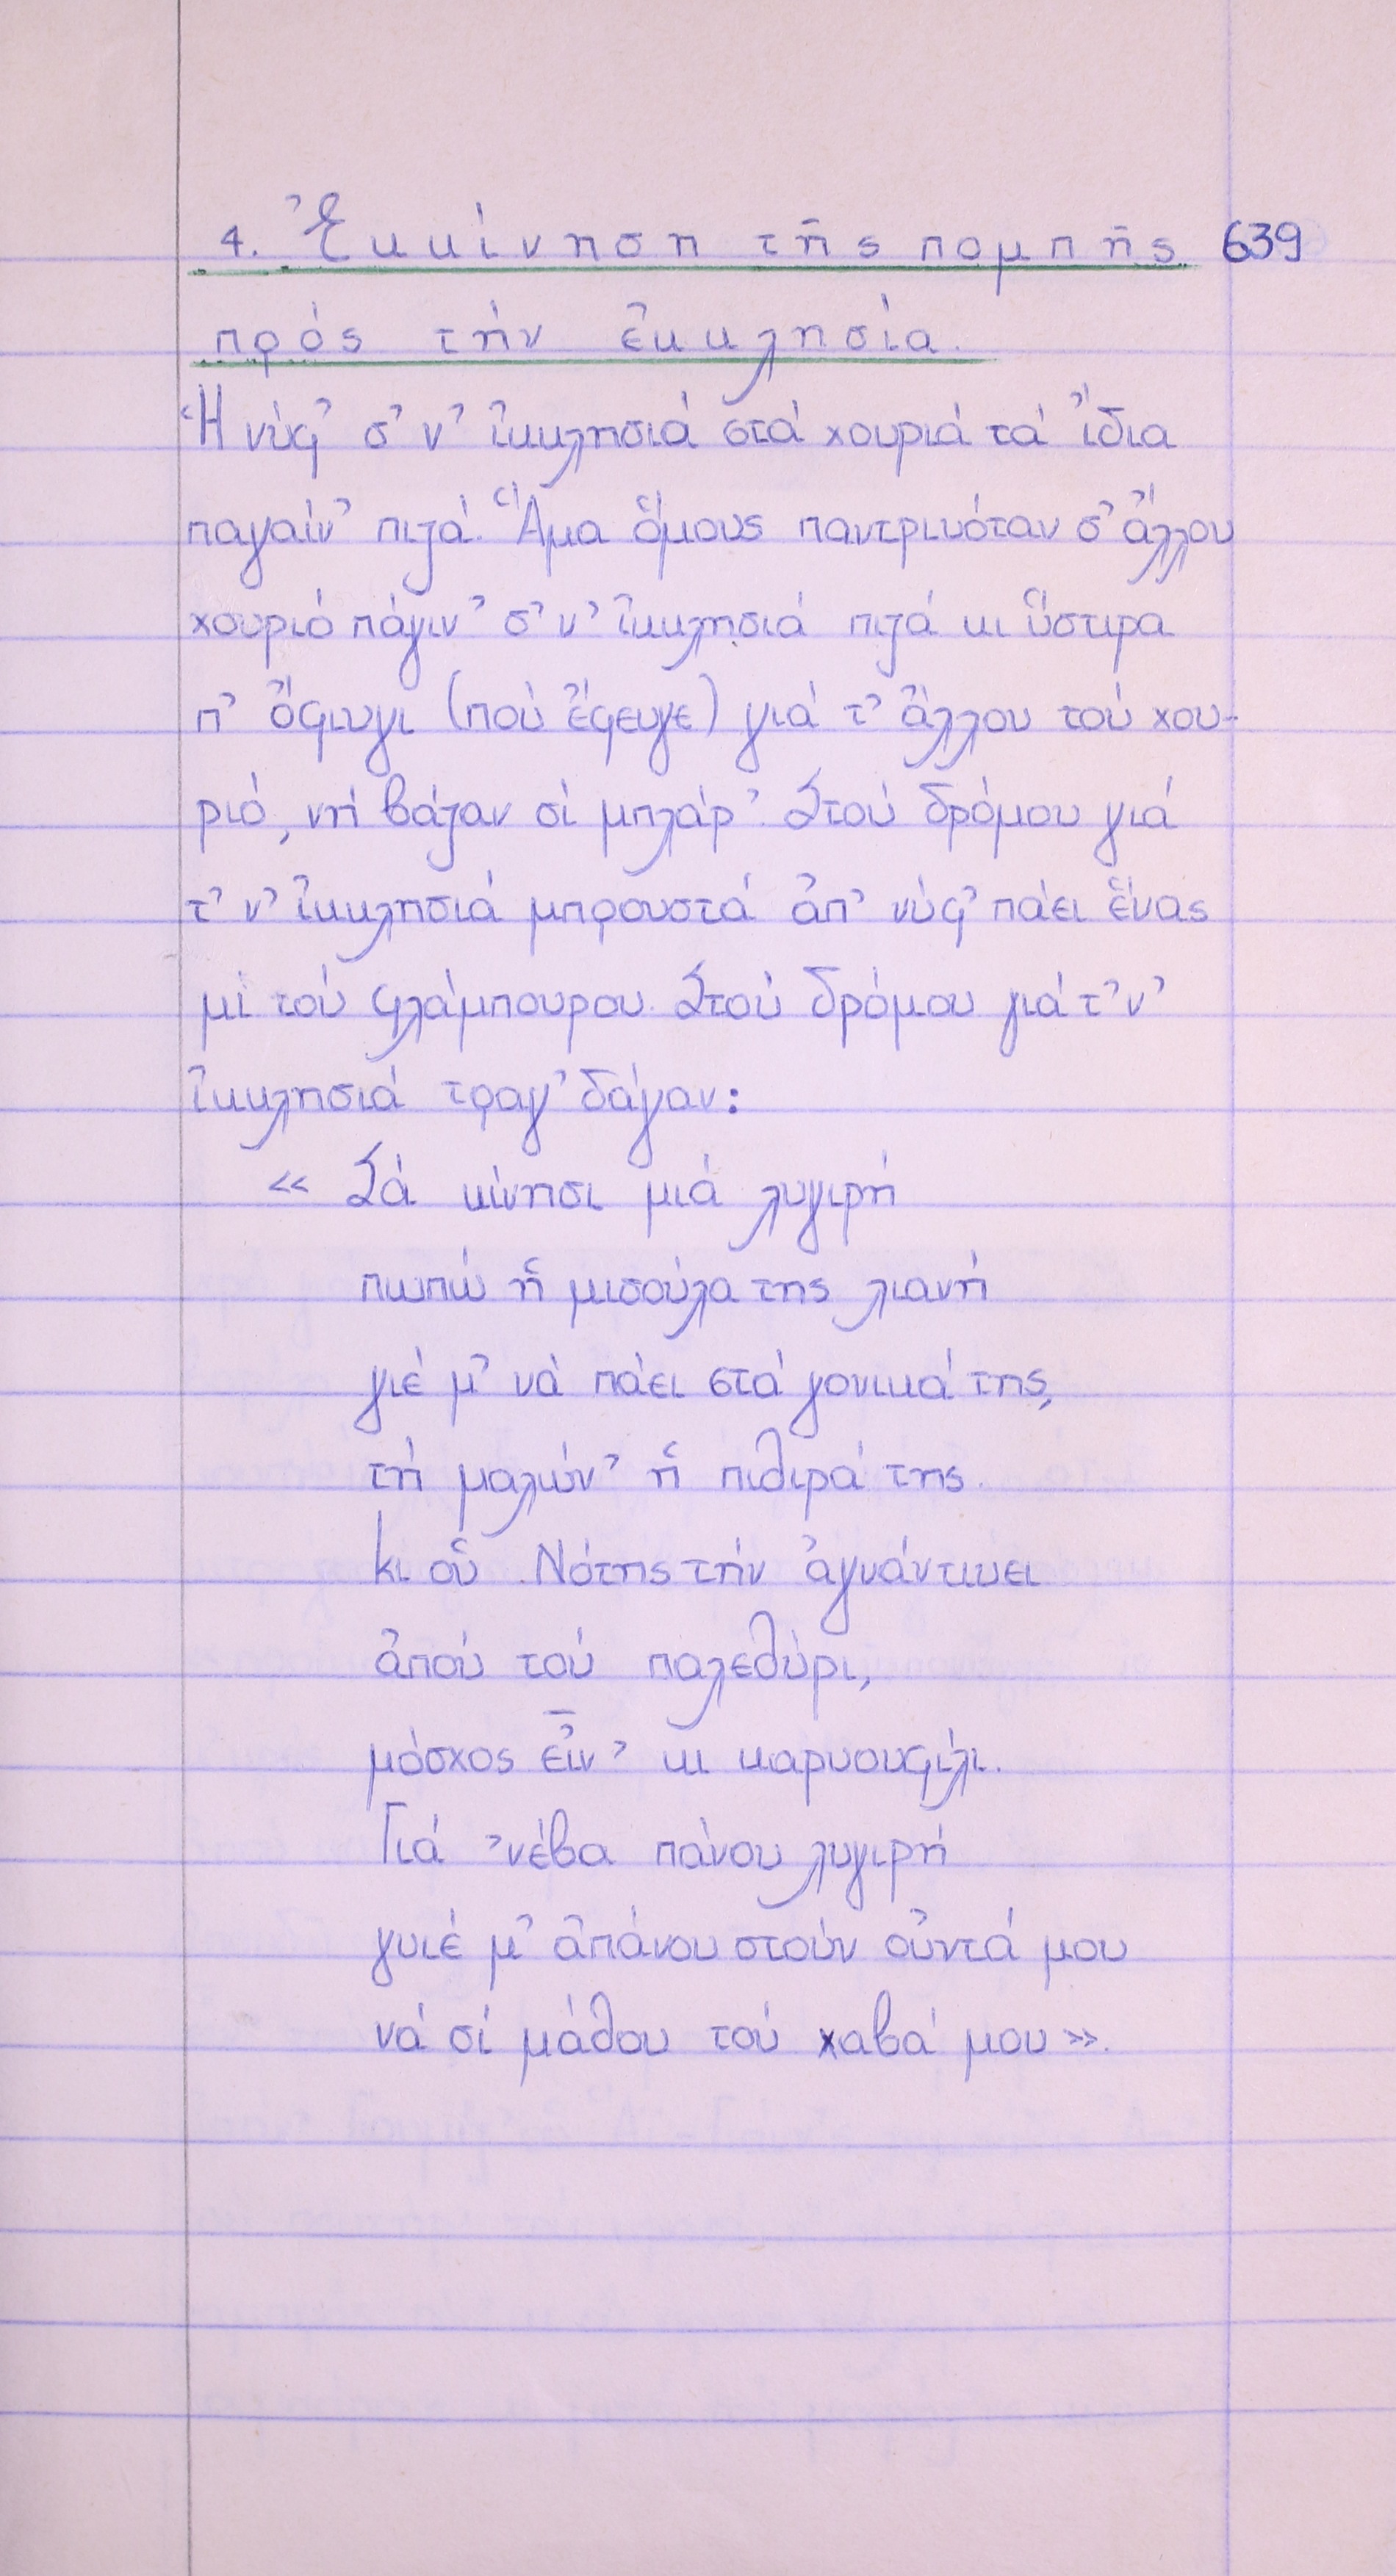 4. Ἐκκίνηση τῆς πομπῆς 639
πρός τήν ἐκκλησία.
Ἡ νύφ' σ' ν' ἰκκλησιά στά χουριά τά ἴδια
παγαίν' πιζά. Ἅμα ὅμους παντριυόταν σ' ἄλλου
χουριό πάγιν' σ' ν' ἰκκλησιά πιζά κι ὕστιρα
π' ὄφιυγι (πού ἔφευγε) γιά τ' ἄλλου τού χου-
ριό, νή βάζαν σί μπλάρ'. Στού δρόμου γιά
τ' ν' ἰκκλησιά μπρουστά ἀπ' νύφ' πάει ἕνας
μί τού φλάμπουρου. Στού δρόμου γιά τ' ν'
ἰκκλησιά τραγ' δάγαν:
« Σά κίνησι μιά λυγιρή
πωπώ ἡ μισούλα της λιανή
γιέ μ' νά πάει στά γονικά της,
τή μαλών' ἡ πιθιρά της.
Κι οὑ Νότης τήν ἀγνάντιυει
ἀπού τού παλεθύρι,
μόσχος εἶν' κι καρυουφίλι.
Γιά 'νέβα πάνου λυγιρή
γυιέ μ' ἀπάνου στούν οὐντά μου
νά σί μάθου τού χαβά μου».